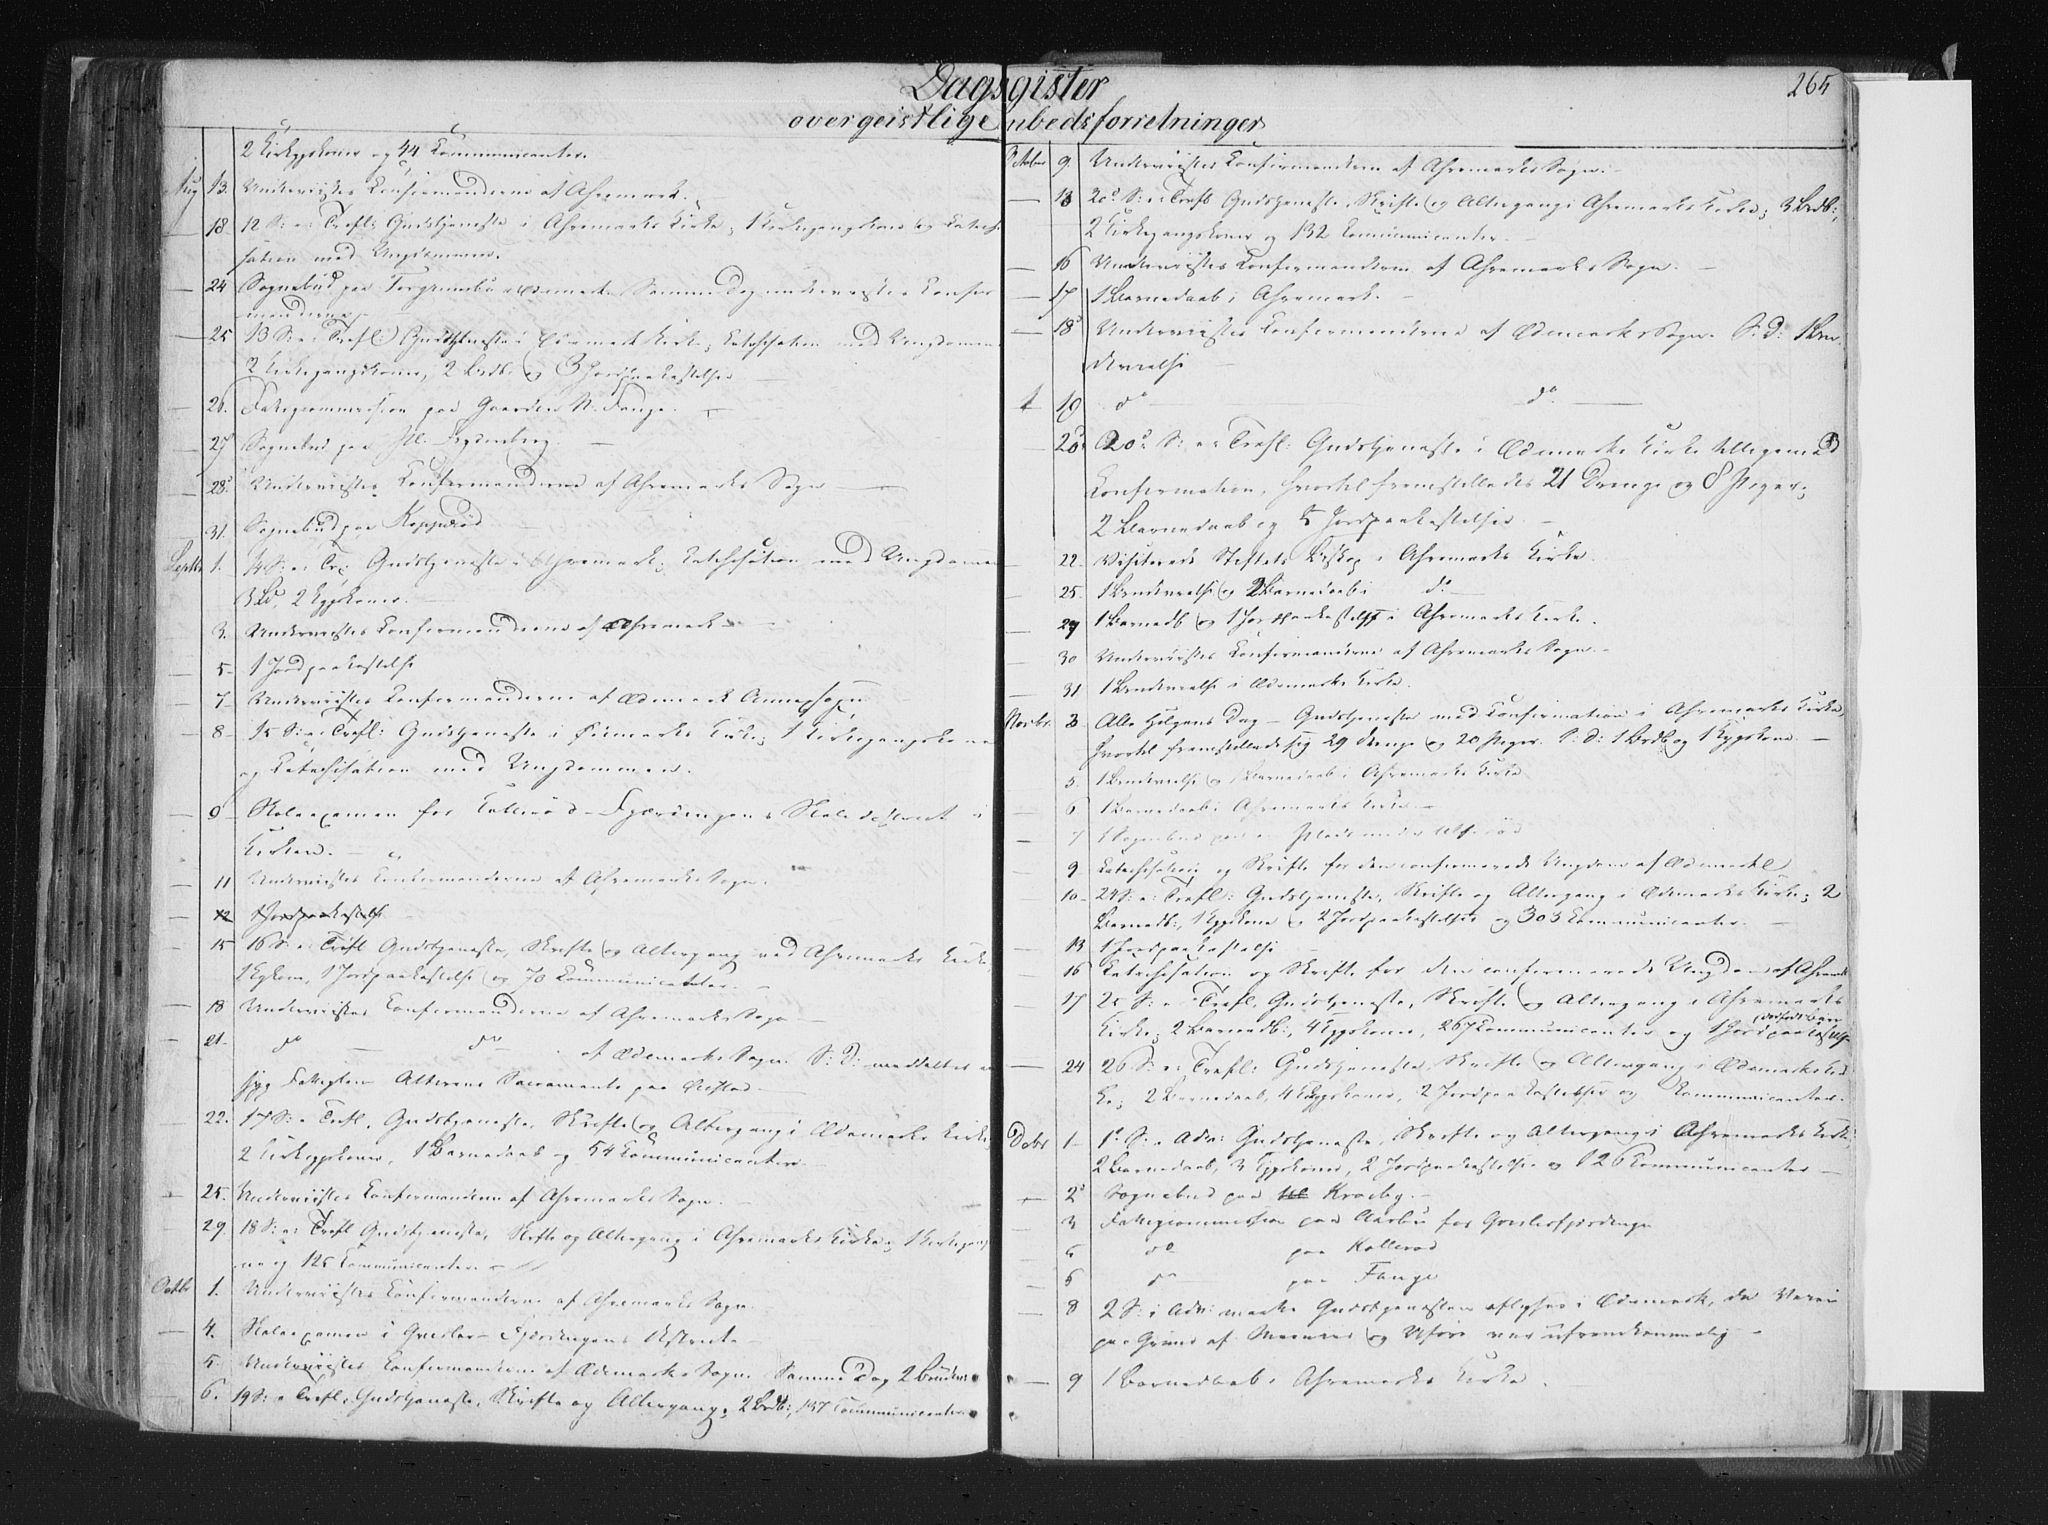 Dagsgister
over geistlige mbedsforretninger
265
2 Kirkegskoner og 44 Communicanter.
Aug 13. Underviistes Confirmanderne af Ahremark.
18 12 S: e: Trefl: Gudstjeneste i Ahremarks Kirke; 1 Kirkegangskone og Catechi-
sation med Ungdommen.
24 Sognebud paa Samme Dag underviistes Confir
manderne
25 13 S: e: Trefl: Gudstjeneste i Ødemark Kirke; Catechisation med Ungdommen
2 Kirkegangskoner, 2 Brdb: og 3 Jordpaakastelser
26. Fattigcommission paa Gaarden N. Fange.
27 Sognebud paa
28 Underviistes Confirmanderne af Ahremarks Sogn
31. Sognebud paa Kopperød
Septbr 1. 14 S: e: Tr: Gudstjeneste i Ahremark; Catechisation med Ungdommen
3 Bd, 2 Kgskoner.
3. Underviistes Confirmanderne af Ahremark
5 1 Jordpaakastelse
7 Underviistes Confirmanderne af Ødemark Annexsogn
8 15 S: e: Trefl: Gudstjeneste i Ødemarks Kirke; 1 Kirkegangskone
og Catechisation med Ungdommen.
9 Skoleexamen for Kollerød-Fjerdingens Skoledistrict i
Kirken.
11 Underviistes Confirmanderne af Ahremarks Sogn.
12 1 Jordpaakastelse
15 16 S: e: Trefl Gudstjeneste, Skrifte og Altergang ved Ahremarks Kirke,
1 Kgkone, 1 Jordpaakastelse og 70 Communicanter.
18 Underviistes Confirmanderne af Ahremarks Sogn
21. do do af Ødemarks Sogn. S: D: meddeltes en
syg Fattiglem Alterens Sacramente paa
22. 17 S: e Trefl, Gudstjeneste, Skrifte og Altergang i Ødemarks Kirke,
2 Kirkegskoner, 1 Barnedaab og 54 Communicanter.
25. Underviistes Confirmanderne af Ahremarks Sogn.
29. 18 S: e: Trefl Gudstjeneste, Skrifte og Altergang i Ahremarks Kirke; 1 Kirkegangs
ne og 125 Communicanter.
Octbr 1. Underviistes Confirmanderne af Ahremarks Sogn.
4. Skoleexamen i Fjerdingens District
5. Underviistes Confirmanderne af Ødemarks Sogn. Samme Dag 2
6. 19 S: e Trefl: Gudstjeneste, Skrifte og Altergang, 2 Brdb:, 137 Communicanter
October 9. Underviistes Confirmanderne af Ahremarks Sogn.
13 20d S: e: Trefl Gudstjeneste, Skrifte og Altergang i Ahremarks Kirke; 3 Brdb:,
2 Kirkegangskoner og 132 Communicanter.
16 Underviistes Confirmanderne af Ahremarks Sogn.
17 1 Barnedaab i Ahremark.
18 Underviistes Confirmanderne af Ødemarks Sogn. S: D: 1 Bru-
devielse
19 do do
20. 20d S: e: Trefl: Gudstjeneste i Ødemarks Kirke tilligemed
Confirmation, hvortil fremstilledes 21 Drenge og 8 Piger;
2 Barnedaab og 5 Jordpaakastelser
22. Visiterede Stiftets Biskop i Ahremarks Kirke.
25. 1 Brudevielse og 2 Barnedaab i do
27 1 Barnedb og 1 Jordpaakastelse i Ahremarks Kirke.
30 Underviistes Confirmanderne af Ahremarks Sogn.
31 1 Brudevielse i Ødemarks Kirke.
Novbr. 3 Alle Helgens Dag – Gudstjeneste med Confirmation i Ahremarks Kirke,
hvortil fremstillede sig 29 Drenge og 20 Piger. S: D: 1 Brdb og 1 Kgskone.
5. 1 Brudevielse og 1 Barnedaab i Ahremarks Kirke
6 1 Barnedaab i Ahremarks Kirke
7 1 Sognebud paa en Plads under
9 Catechisation og Skrifte for den confirmerede Ungdom af Ødemark
10 24 S: e: Trefl: Gudstjeneste, Skrifte og Altergang i Ødemarks Kirke; 2
Barnedb:, 1 Kgskone, 2 Jordpaakastelser og 303 Communicanter.
13 1 Jordpaakastelse
16 Catechisation og Skrifte for den confirmerede Ungdom af Ahremark
17 25 S: e Trefl, Gudstjeneste, Skrifte og Altergang i Ahremarks
Kirke; 2 Barnedb:, 4 Kgskoner, 267 Communicanter og 1 Jordpaakastelse
(dødfødt Barn
24 26 S: e: Trefl: Gudstjeneste, Skrifte og Altergang i Ødemarks Kir-
ke; 2 Barnedaab, 4 Kgskoner, 2 Jordpaakastelser og Communicanter.
Decbr 1 1e S: e Adv: Gudstjeneste, Skrifte og Altergang i Ahremarks Kirke;
2 Barnedaab, 3 Kgskoner, 2 Jordpaakastelse og 126 Communicanter
2d Sognebud paa Kroeby.
3 Fattigcommission paa Aarbu for
5 do paa Kollerød
6 do paa Fange
8 2 S: i Adv: maatte Gudstjenesten aflyses i Ødemark, da Veien
paa Grund af og Uføre var ufremkommelig
9 1 Barnedaab i Ahremarks Kirke.